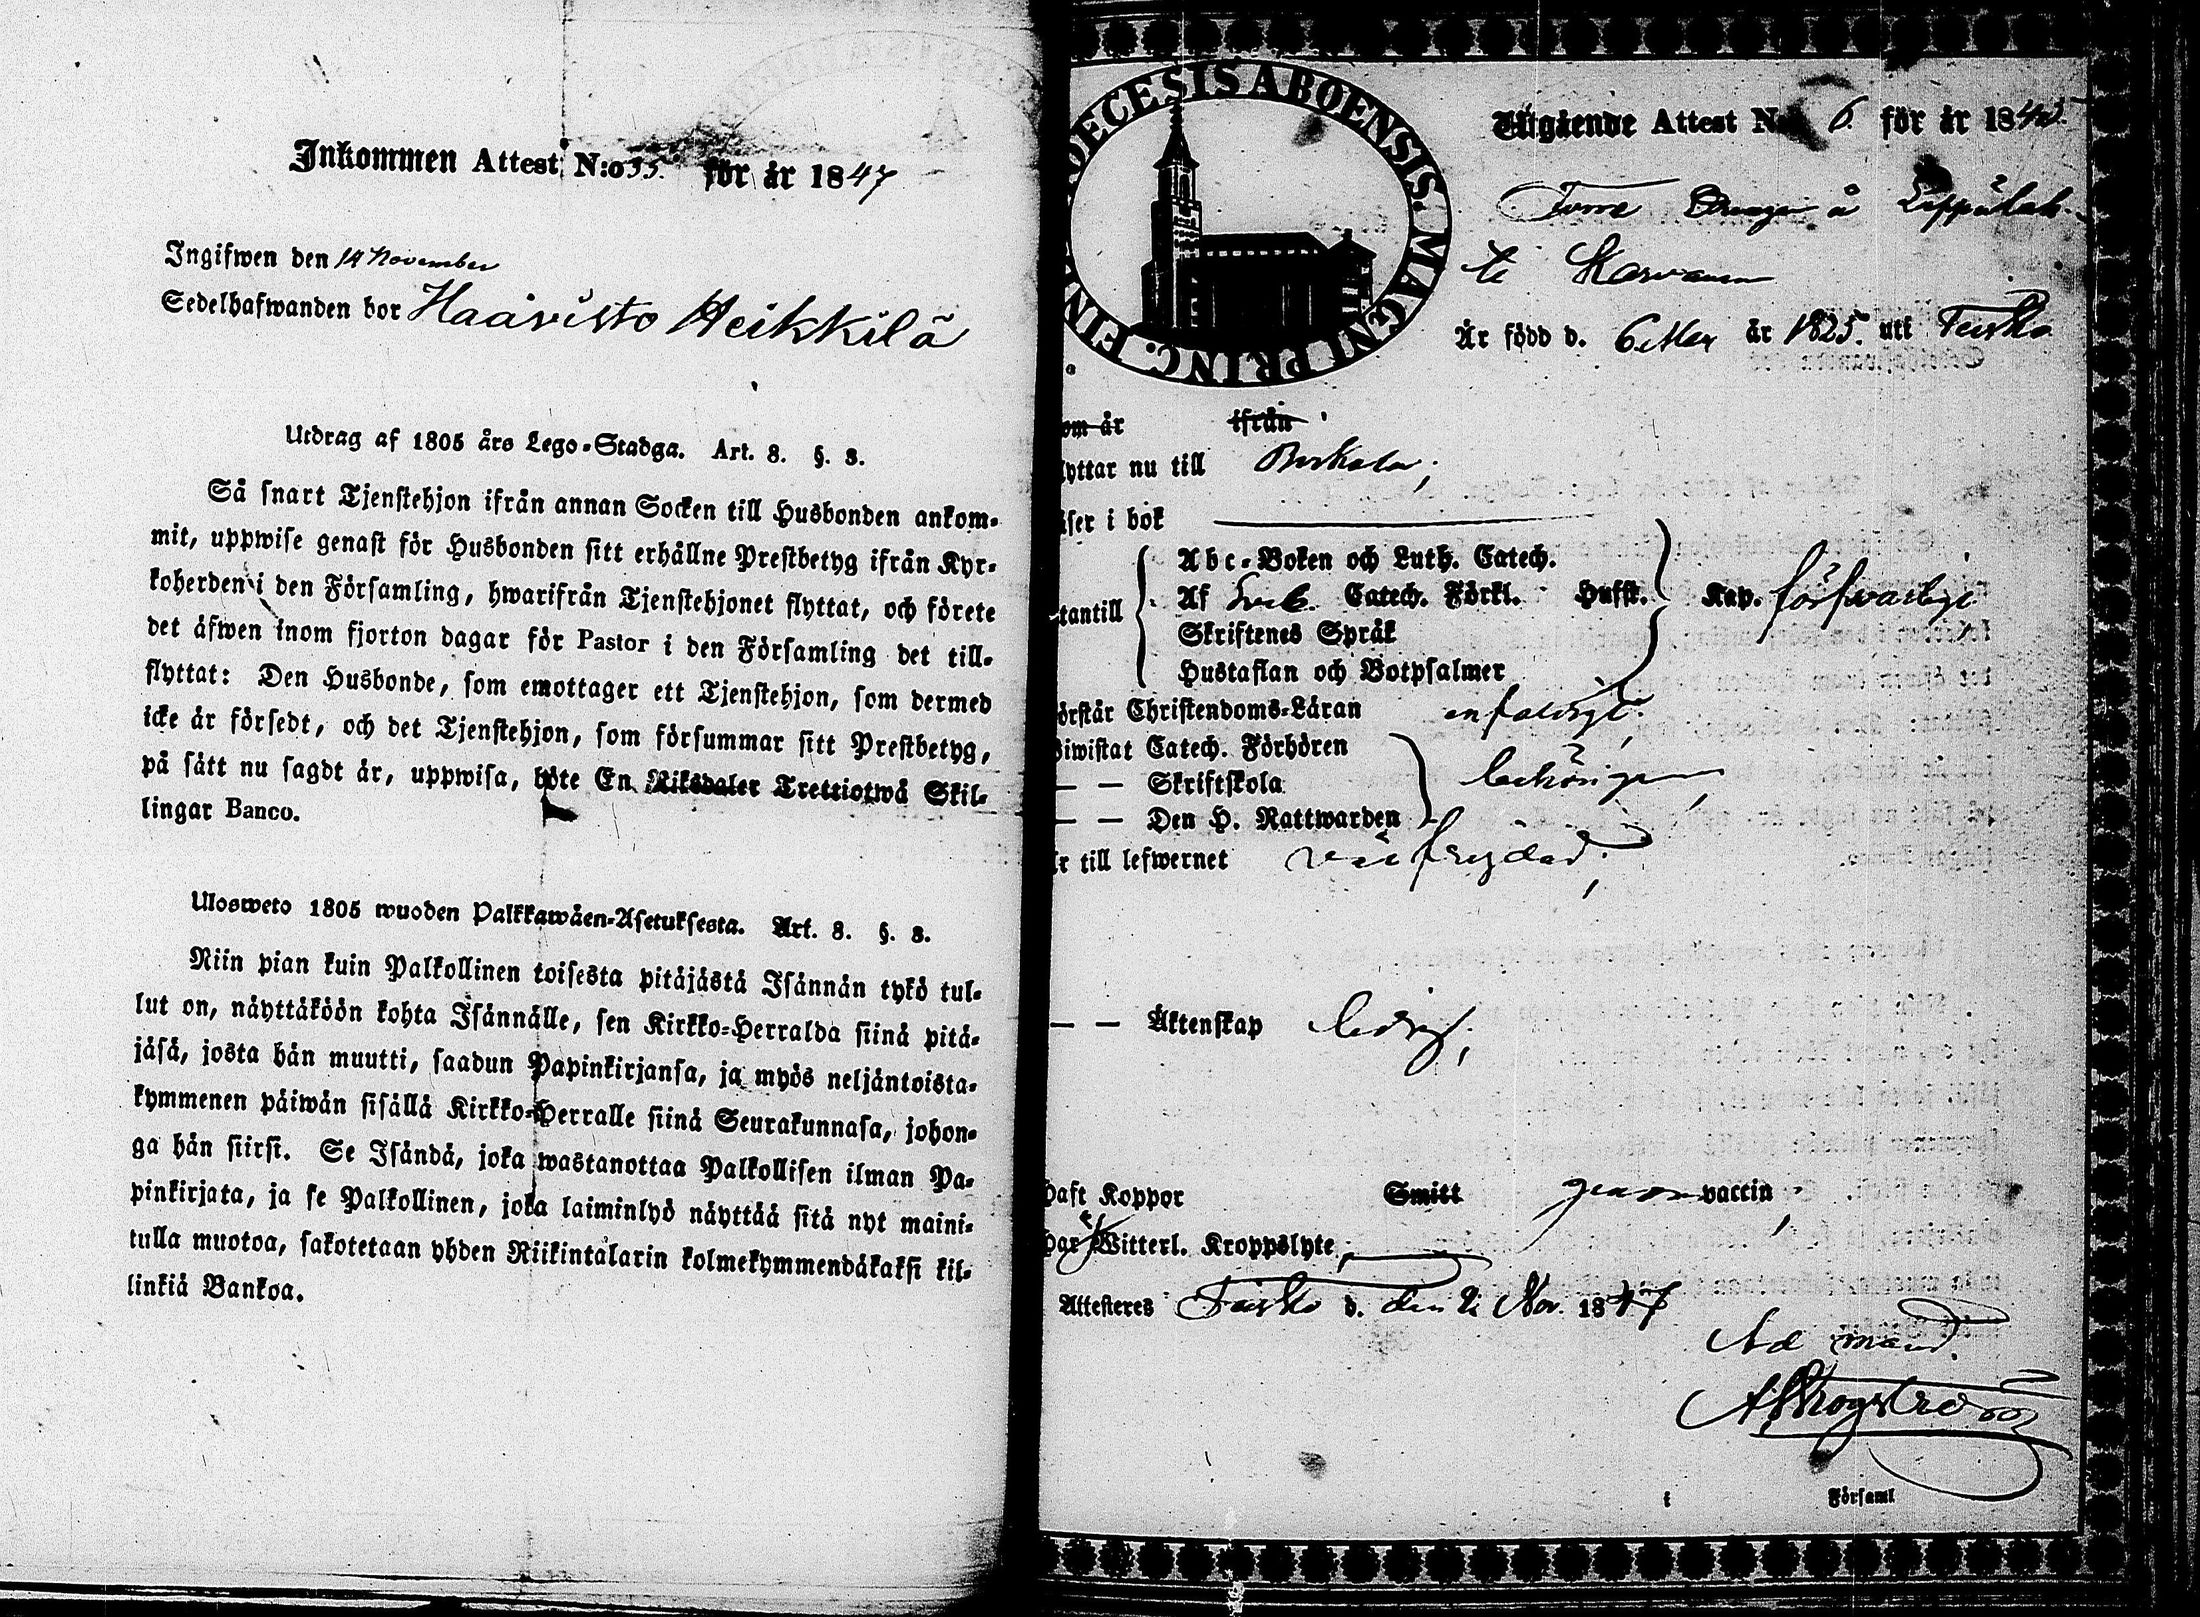 Inkommen Attest N:o 35. för år 1847
Ingifwen den 14 November
Sedelhafwanden bor Haavisto Heikkilä
Utdrag af 1805 års Lego-Stadga. Art. 8. §. 3.
Så snart Tjenstehjon ifrån annan Socken till Husbonden ankom-
mit, uppwise genast för Husbonden sitt erhållne Prestbetyg ifrån Kyr-
koherden i den Församling, hwarifrån Tjenstehjonet flyttat, och förete
det äfwen inom fjorton dagar för Pastor i den Församling det till-
flyttat: Den Husbonde, som emottager ett Tjenstehjon, som dermed
icke är försedt, och det Tjenstehjon, som försummar sitt Prestbetyg,
på sätt nu sagdt är, uppwisa, böte En Riksdaler Trettiotwå Skil-
lingar Banco.
Ulosweto 1805 wuoden Palkkawäen-Asetuksesta. Art. 8. §. 3.
Niin pian kuin Palkollinen toisesta pitäjästä Isännän tykö tul-
lut on, näyttäköön kohta Isännälle, sen Kirkko-Herralda siinä pitä-
jäsä, josta hän muutti, saadun Papinkirjansa, ja myös neljäntoista-
kymmenen päiwän sisällä Kirkko-Herralle siinä Seurakunnasa, johon-
ga hän siirsi. Se Isändä, joka wastanottaa Palkollisen ilman Pa-
pinkirjata, ja se Palkollinen, joka laiminlyö näyttää sitä nyt maini-
tulla muotoa, sakotetaan yhden Riikintalarin kolmekymmendäkaksi kil-
linkiä Bankoa.
DIOECESIS ABOENSIS. MAGNI PRINC. FIN
Utgående Attest N:o 6. för år 184
å
Är född d. 6 Maj år 1825. uti Teisko
om är ifrån
lyttar nu till Birkala;
äser i bok
Abc-Boken och Luth. Catech.
tantill Af Sveb. Catech. Förkl. Husst. Kap. försvarligt
Skriftenes Språk
Hustaflan och Botpsalmer
örstår Christendoms-Läran enfaldigt;
iwistat Catech. Förhören
— — Skriftskola behörigen,
— — Den H. Nattwarden
r till lefwernet väl frejdad;
— — Äktenskap ledig;
haft Koppor Smitt genom vaccin,
har ej Witterl. Kroppslyte;
Attesteres Teisko d. den 2 Nov. 1847
Ad mand.
i Församl